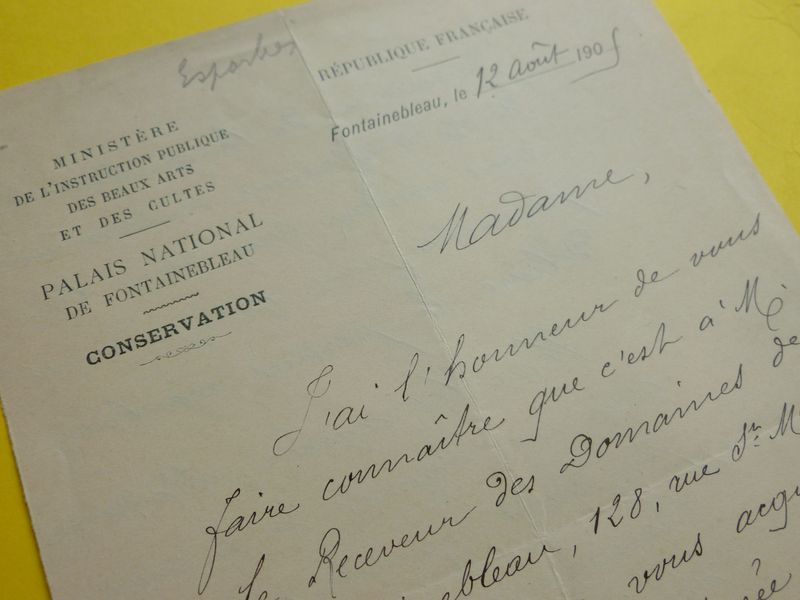 RÉPUBLIQUE FRANÇAISE
Fontainebleau, le 12 août 1905
MINISTÈRE
DE L'INSTRUCTION PUBLIQUE
DES BEAUX ARTS
ET DES CULTES
PALAIS NATIONAL
DE FONTAINEBLEAU
CONSERVATION
Madame,
J'ai l'honneur de vous
faire connaître que c'est à Mr
le Receveur des Domaines de
ebleau, 128, rue St. M
vous acqu